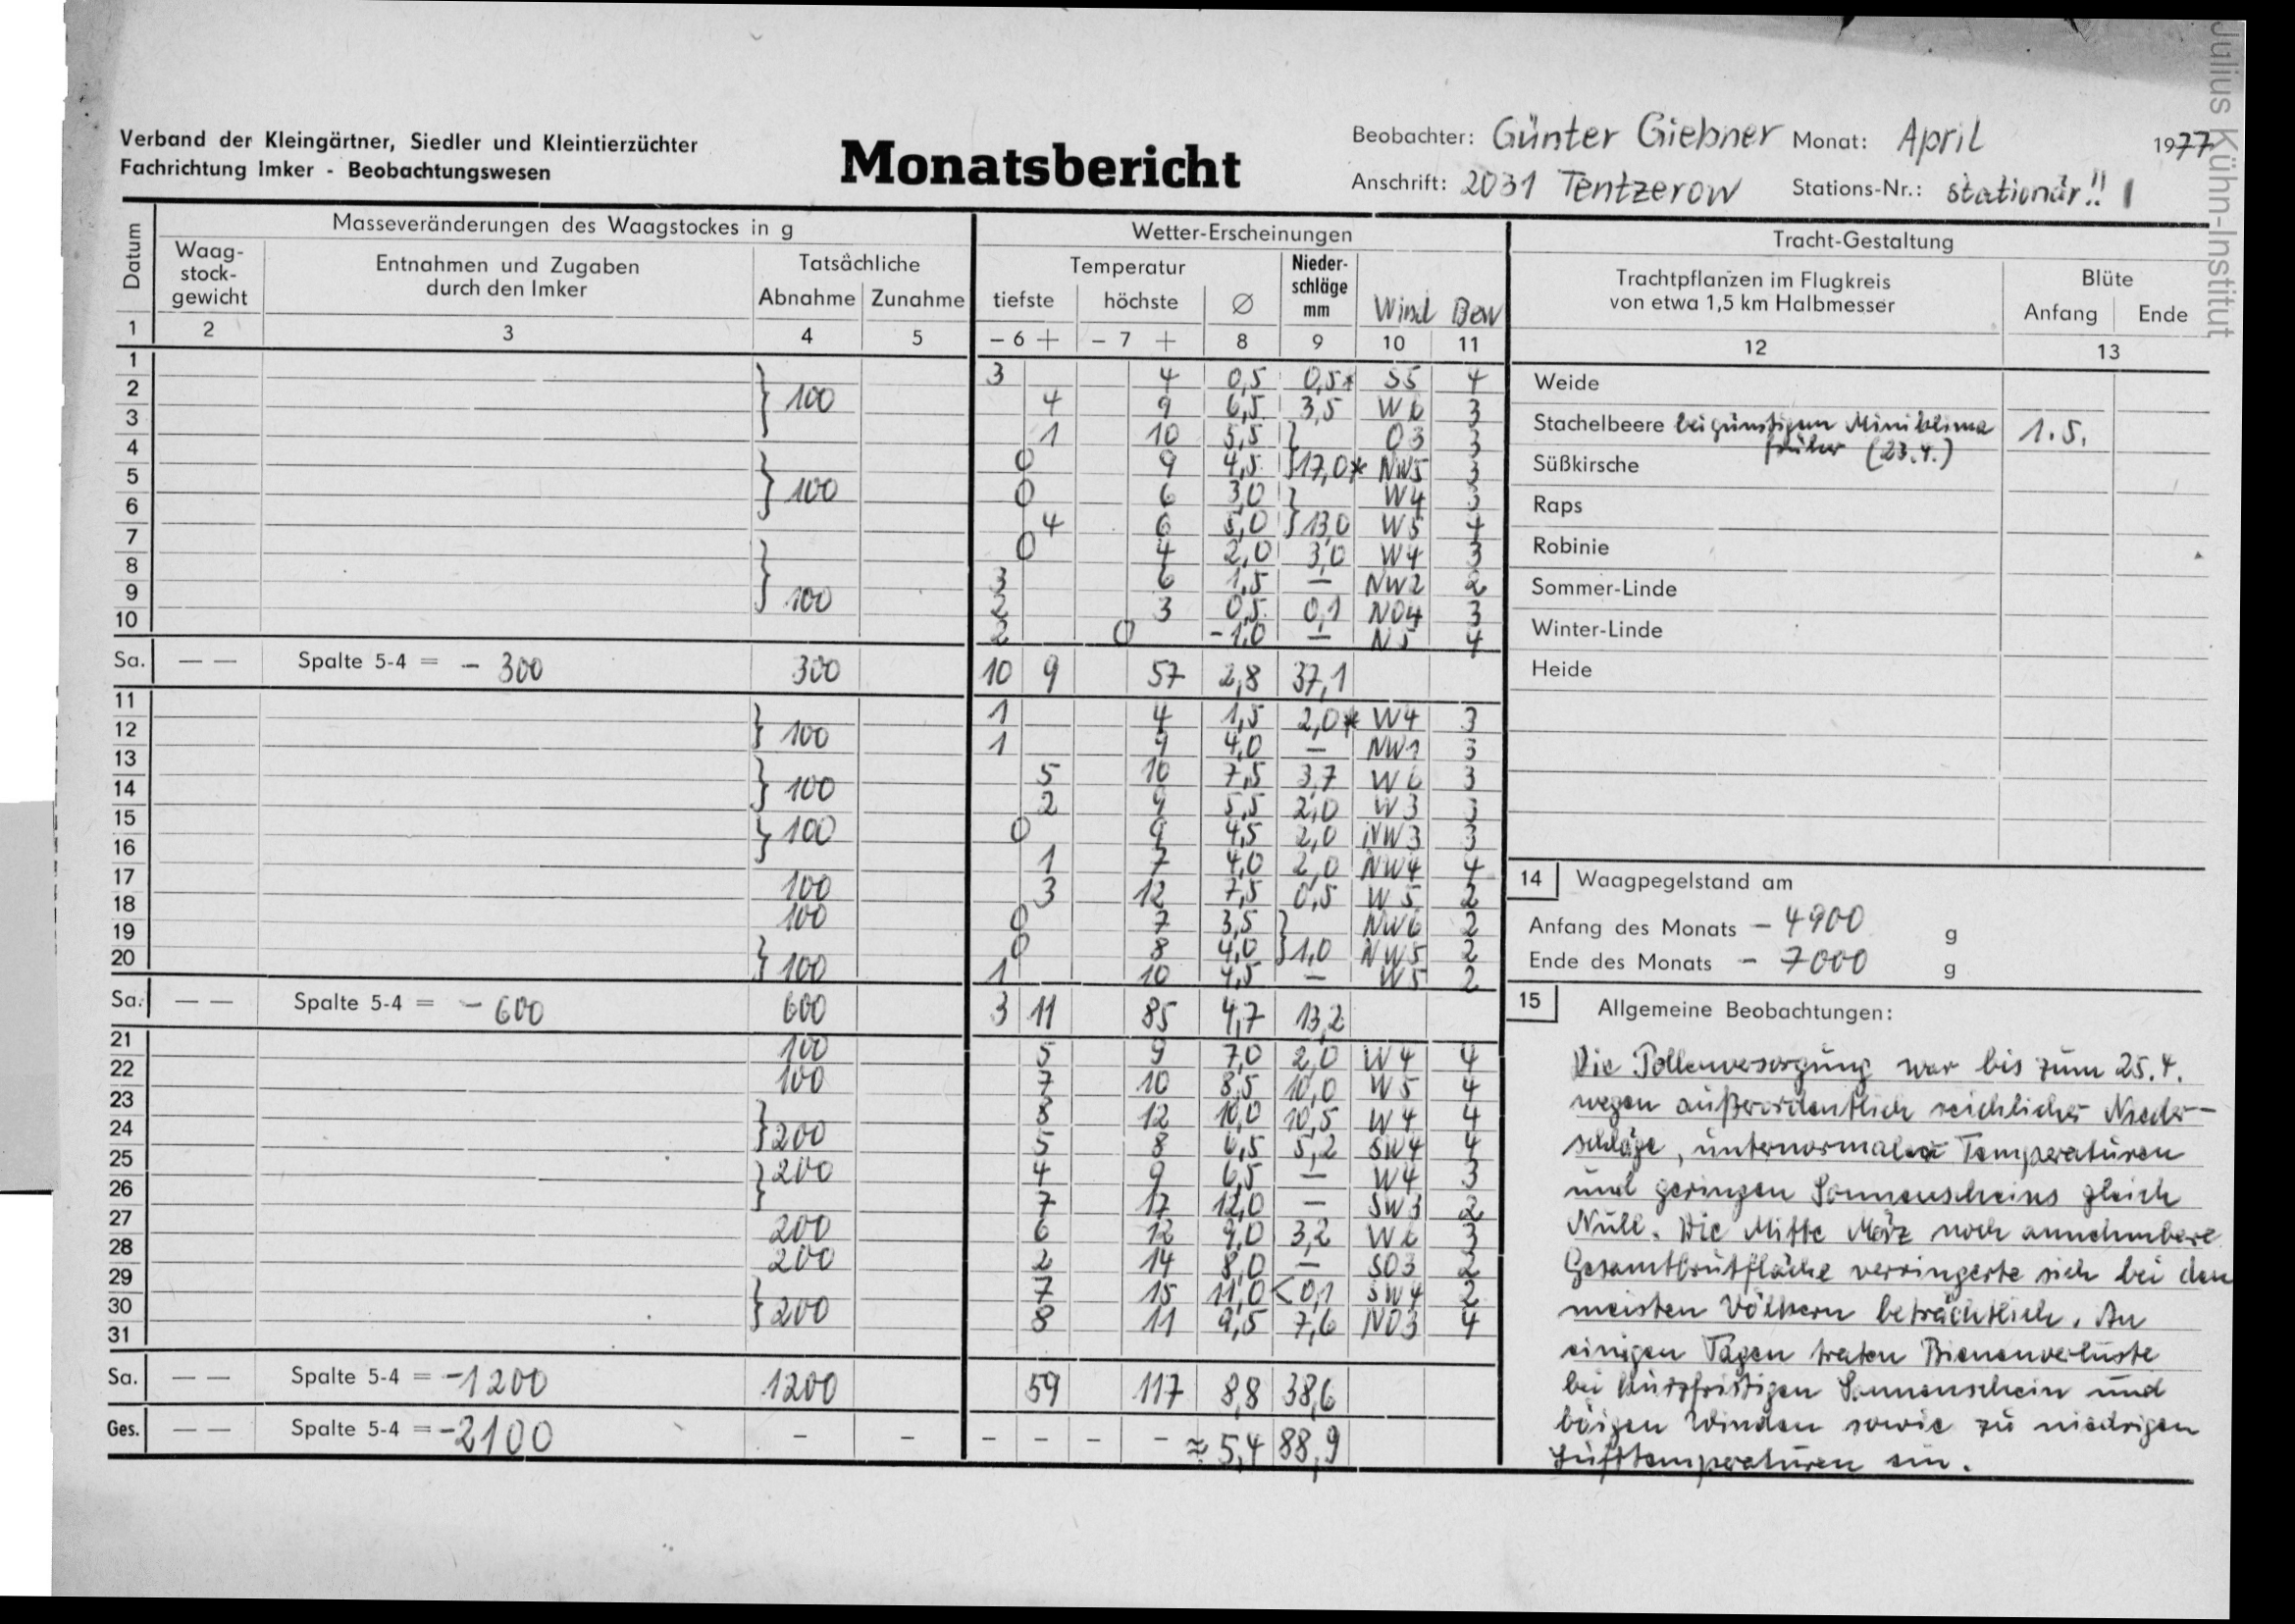 Verband der Kleingärtner, Siedler und Kleintierzüchter
Fachrichtung Imker - Beobachtungswesen
Monatsbericht
Beobachter: Günter Giebner Monat: April 1977
Anschrift: 2031 Tentzerow Stations-Nr.: stationär!! 1
Julius Kühn-Institut
Datum
Masseveränderungen des Waagstockes in g
Waag-
stock-
gewicht
Entnahmen und Zugaben
durch den Imker
Tatsächliche
Abnahme Zunahme
Wetter-Erscheinungen
Temperatur
tiefste höchste Ø
Nieder-
schläge
mm
Wind Bew
1 2 3 4 5 - 6 + - 7 + 8 9 10 11
1 3 4 0,5 0,5* S5 4
2 } 100 4 9 6,5 3,5 W6 3
3 1 10 5,5 } O3 3
4 0 9 4,5 } 17,0* NW5 3
5 } 100 0 6 3,0 } W4 3
6 4 6 5,0 } 13,0 W5 4
7 0 4 2,0 3,0 W4 3
8 } 3 6 1,5 — NW2 2
9 100 2 3 0,5 0,1 NO4 3
10 2 0 -1,0 — N5 4
Sa. — — Spalte 5-4 = - 300 300 10 9 57 2,8 37,1
11 1 4 1,5 2,0* W4 3
12 } 100 1 9 4,0 — NW1 3
13 5 10 7,5 3,7 W6 3
14 } 100 2 9 5,5 2,0 W3 3
15 } 100 0 9 4,5 2,0 NW3 3
16 1 7 4,0 2,0 NW4 4
17 100 3 12 7,5 0,5 W5 2
18 100 0 7 3,5 } NW6 2
19 0 8 4,0 } 1,0 NW5 2
20 } 100 1 10 4,5 — W5 2
Sa. — — Spalte 5-4 = - 600 600 3 11 85 4,7 13,2
21 100 5 9 7,0 2,0 W4 4
22 100 7 10 8,5 10,0 W5 4
23 8 12 10,0 10,5 W4 4
24 } 200 5 8 6,5 5,2 SW4 4
25 } 200 4 9 6,5 — W4 3
26 7 17 12,0 — SW3 2
27 200 6 12 9,0 3,2 W6 3
28 200 2 14 8,0 — SO3 2
29 7 15 11,0 <0,1 SW4 2
30 } 200 8 11 9,5 7,6 NO3 4
31
Sa. — — Spalte 5-4 = -1200 1200 59 117 8,8 38,6
Ges. — — Spalte 5-4 = -2100 - - - - - - ≈ 5,4 88,9
Tracht-Gestaltung
Trachtpflanzen im Flugkreis
von etwa 1,5 km Halbmesser
Blüte
Anfang Ende
12 13
Weide
Stachelbeere bei günstigem Miniklima 1.5.
früher (23.4.)
Süßkirsche
Raps
Robinie
Sommer-Linde
Winter-Linde
Heide
14 Waagpegelstand am
Anfang des Monats - 4900 g
Ende des Monats - 7000 g
15 Allgemeine Beobachtungen:
Die Pollenversorgung war bis zum 25.4.
wegen außerordentlich reichlicher Nieder-
schläge, unternormaler Temperaturen
und geringen Sonnenscheins gleich
Null. Die Mitte März noch annehmbare
Gesamtbrutfläche verringerte sich bei den
meisten Völkern beträchtlich. An
einigen Tagen traten Bienenverluste
bei kurzfristigen Sonnenschein und
böigen Winden sowie zu niedrigen
Lufttemperaturen ein.